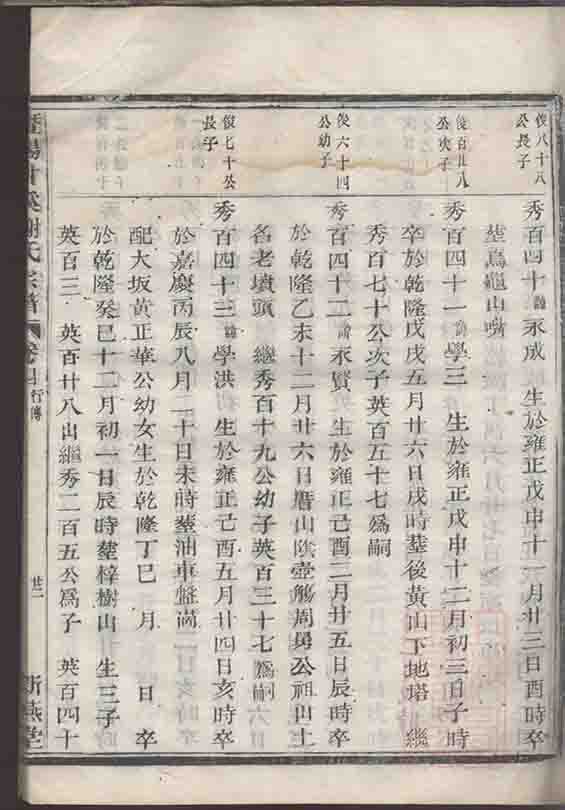 俊八十八
公長子
秀百四十諱永成 生於雍正戊申十一月廿三日酉時卒
塟烏龜山嘴
俊百廿八
公次子
秀百四十一諱學三 生於雍正戊申十二月初三日子時
卒於乾隆戊戌五月廿六日戌時塟後黄山下地塔 繼
秀百七十公次子英百五十七爲嗣
俊六十四
公幼子
秀百四十二諱永賢 生於雍正己酉二月廿五日辰時卒
於乾隆乙未十二月廿六日厝山陰壺觴周勇公祖山土
名老墳頭 繼秀百十九公幼子英百三十七爲嗣
俊七十公
長子
秀百四十三諱學洪 生於雍正己酉五月廿四日亥時卒
於嘉慶丙辰八月二十日未時塟油車盤崗
配大坂黄正華公幼女生於乾隆丁巳 月 日 卒
於乾隆癸巳十二月初一日辰時塟梓樹山 生三子
英百三 英百廿八出繼秀二百五公爲子 英百四十
暨陽 溪謝氏宗譜 卷 行傳 廿二